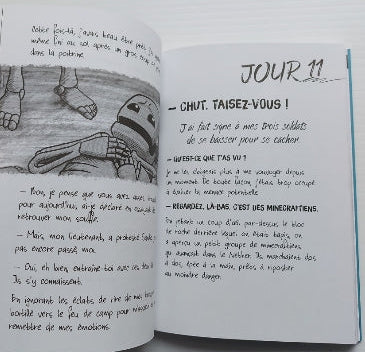 Cette fois-là, j'avais beau être prêt, j'ai
même fini au sol après un gros coup
dans la poitrine.
— Bon, je pense que vous avez assez
pour aujourd'hui, ai-je déclaré en essayant de
retrouver mon souffle.
— Mais, mon lieutenant, a protesté
pas encore passé moi.
— Oui, eh bien entraîne-toi avec les deux
Ils s'y connaissent.
En ignorant les éclats de rire de mes
boitillé vers le feu de camp pour
remettre de mes émotions.
JOUR 11
— CHUT, TAISEZ-VOUS !
J'ai fait signe à mes trois soldats
de se baisser pour se cacher.
— QU'EST-CE QUE T'AS VU ?
Je ne les distingue plus à me vouvoyer depuis
un moment. De toute façon, j'étais trop occupé
à évaluer la menace potentielle.
— REGARDEZ, LÀ-BAS, C'EST DES MINECRAFTIENS.
En jetant un coup d'œil par-dessus le bloc
de roche derrière lequel on était tapis, on
a aperçu un petit groupe de minecraftiens
qui avançait dans le Nether. Ils marchaient dos
à dos, épée à la main, prêts à riposter
au moindre danger.